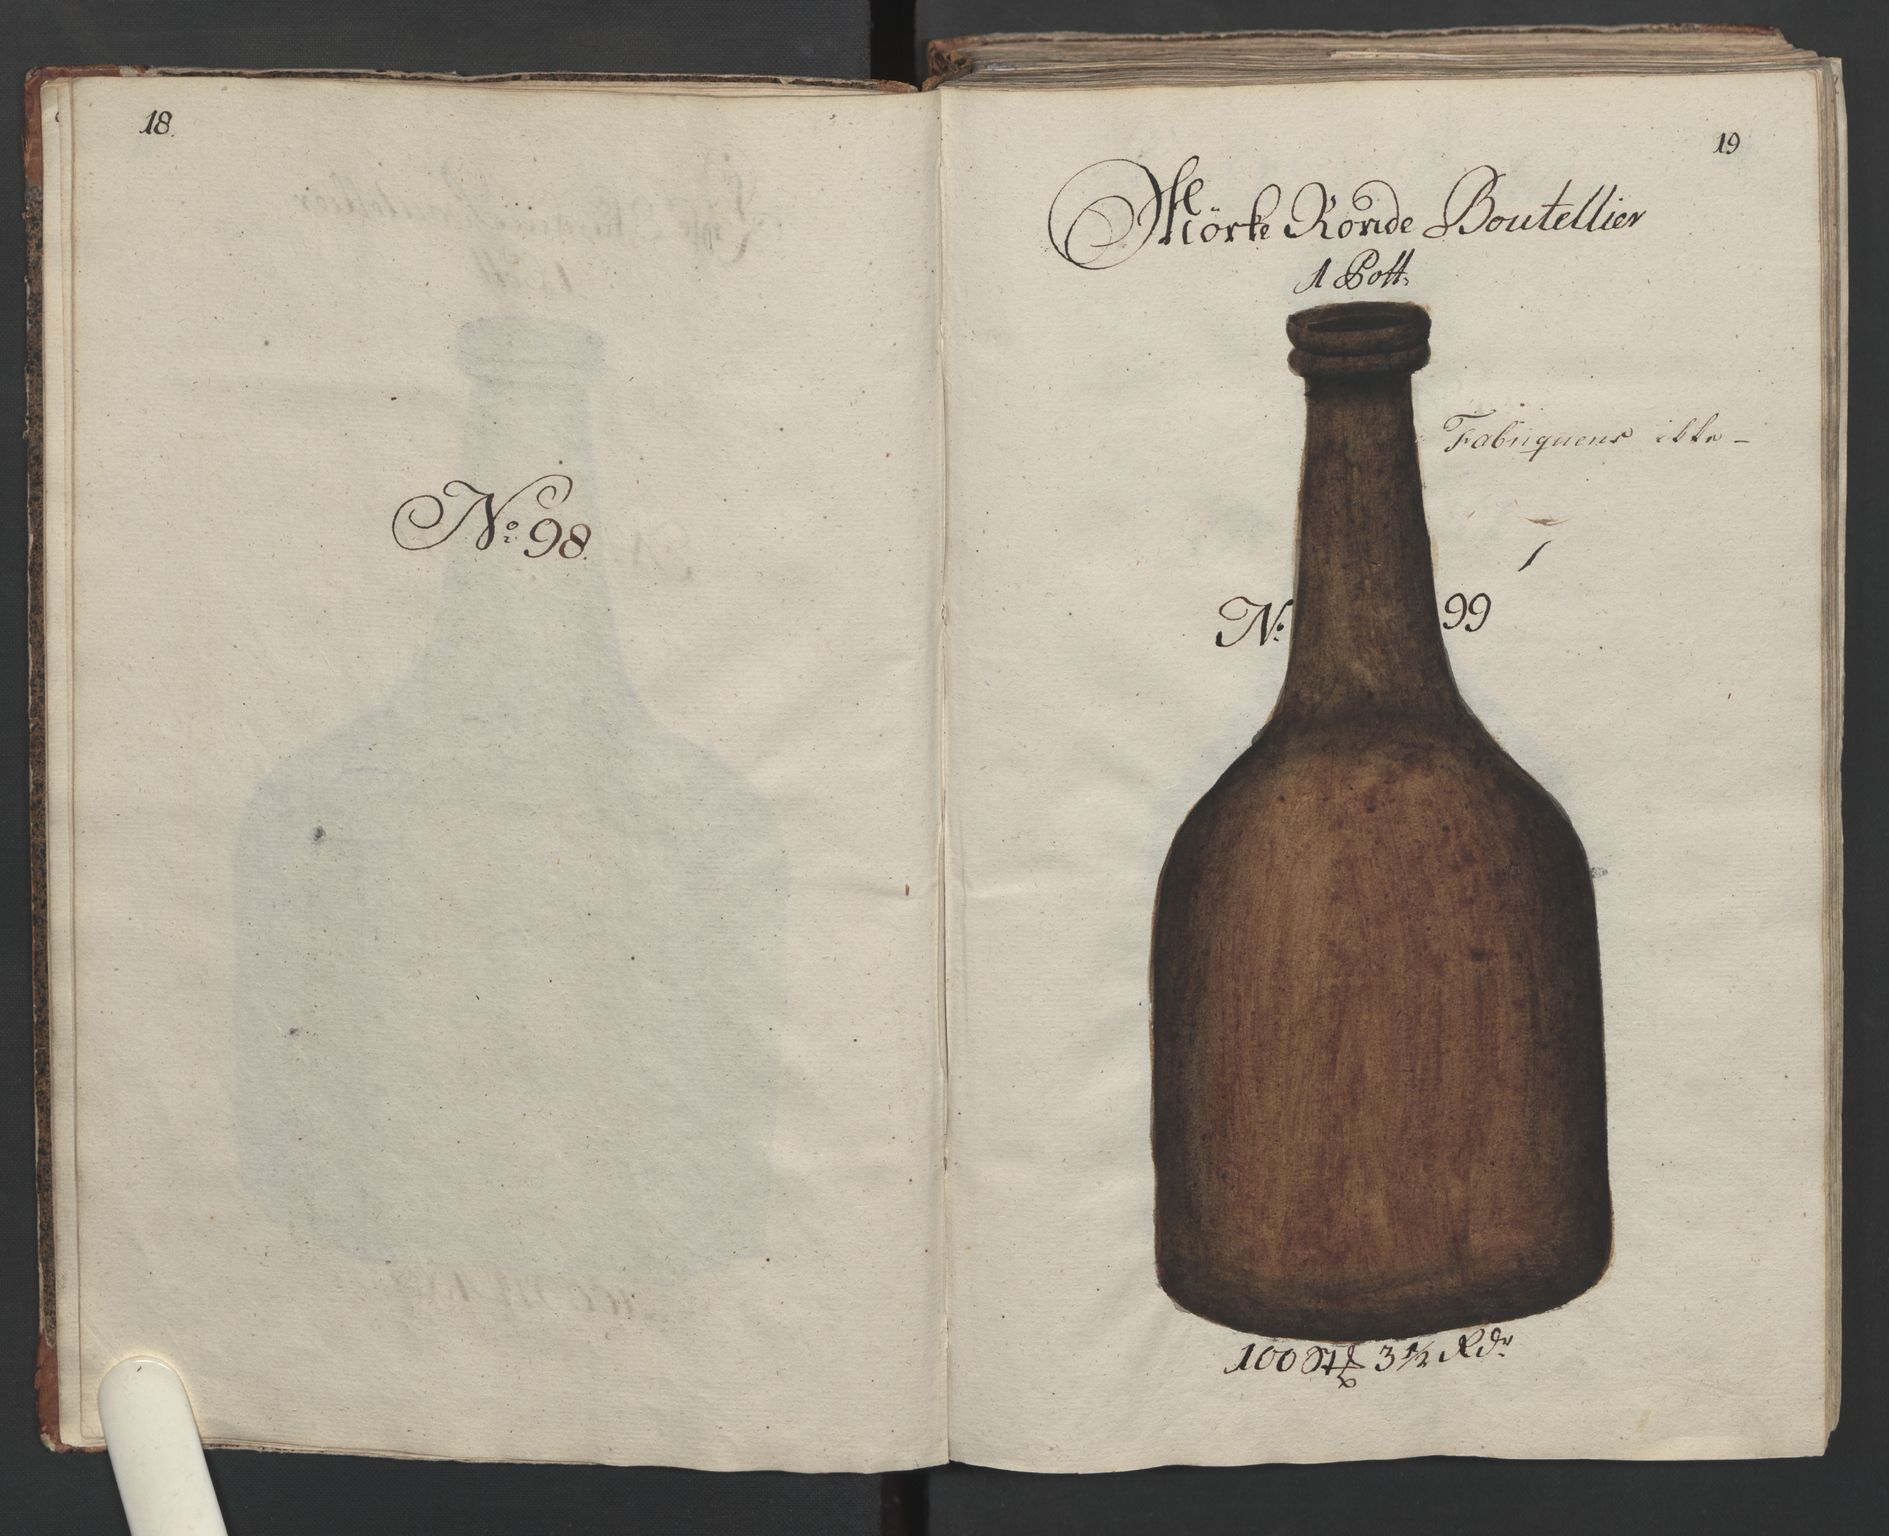 18.
No: 98.
19
Mörke Ronde Boutellier
1 Pott.
Fabriquens ikke –
No: 99
100 St 3 1/2 Rdr